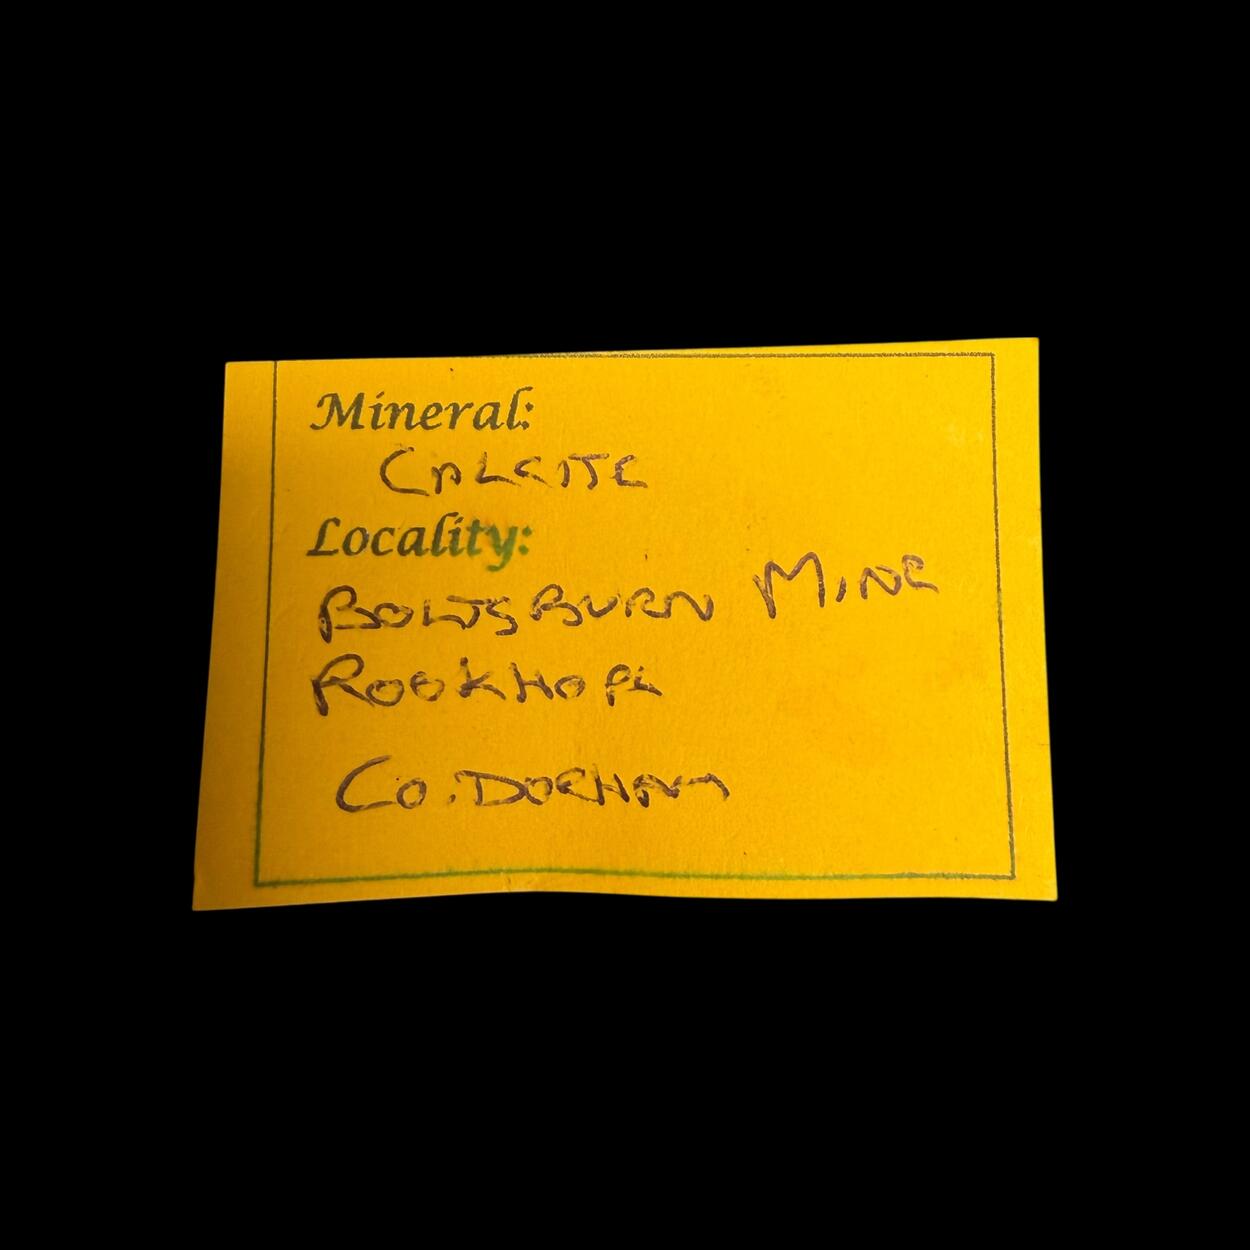 Mineral:
CALCITE
Locality:
BOLTSBURN MINE
ROOKHOPE
CO. DURHAM